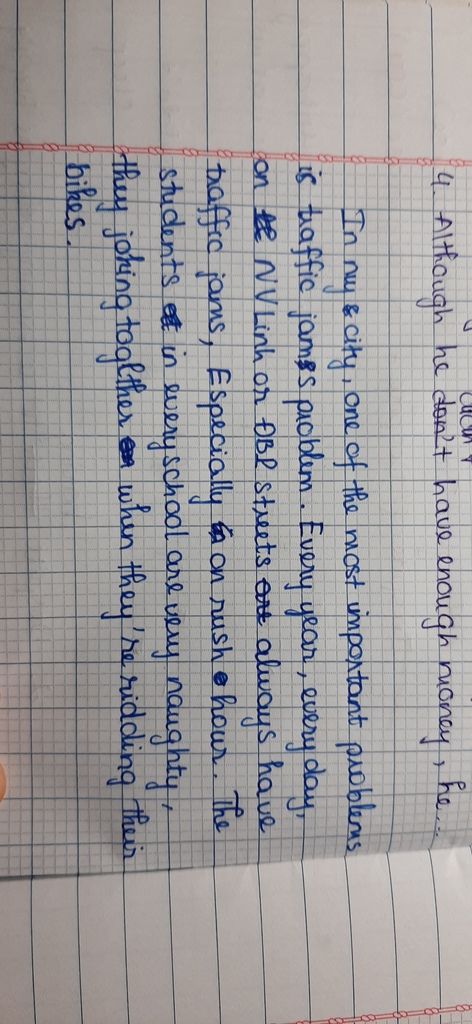 didn't
4. Although he don't have enough money, he...
In my city, one of the most important problems
is traffic jams problem. Every year, every day,
on NV Linh or ĐBP streets always have
traffic jams, Especially on rush hour. The
students in every school are very naughty,
they joking together when they're ridding their
bikes.